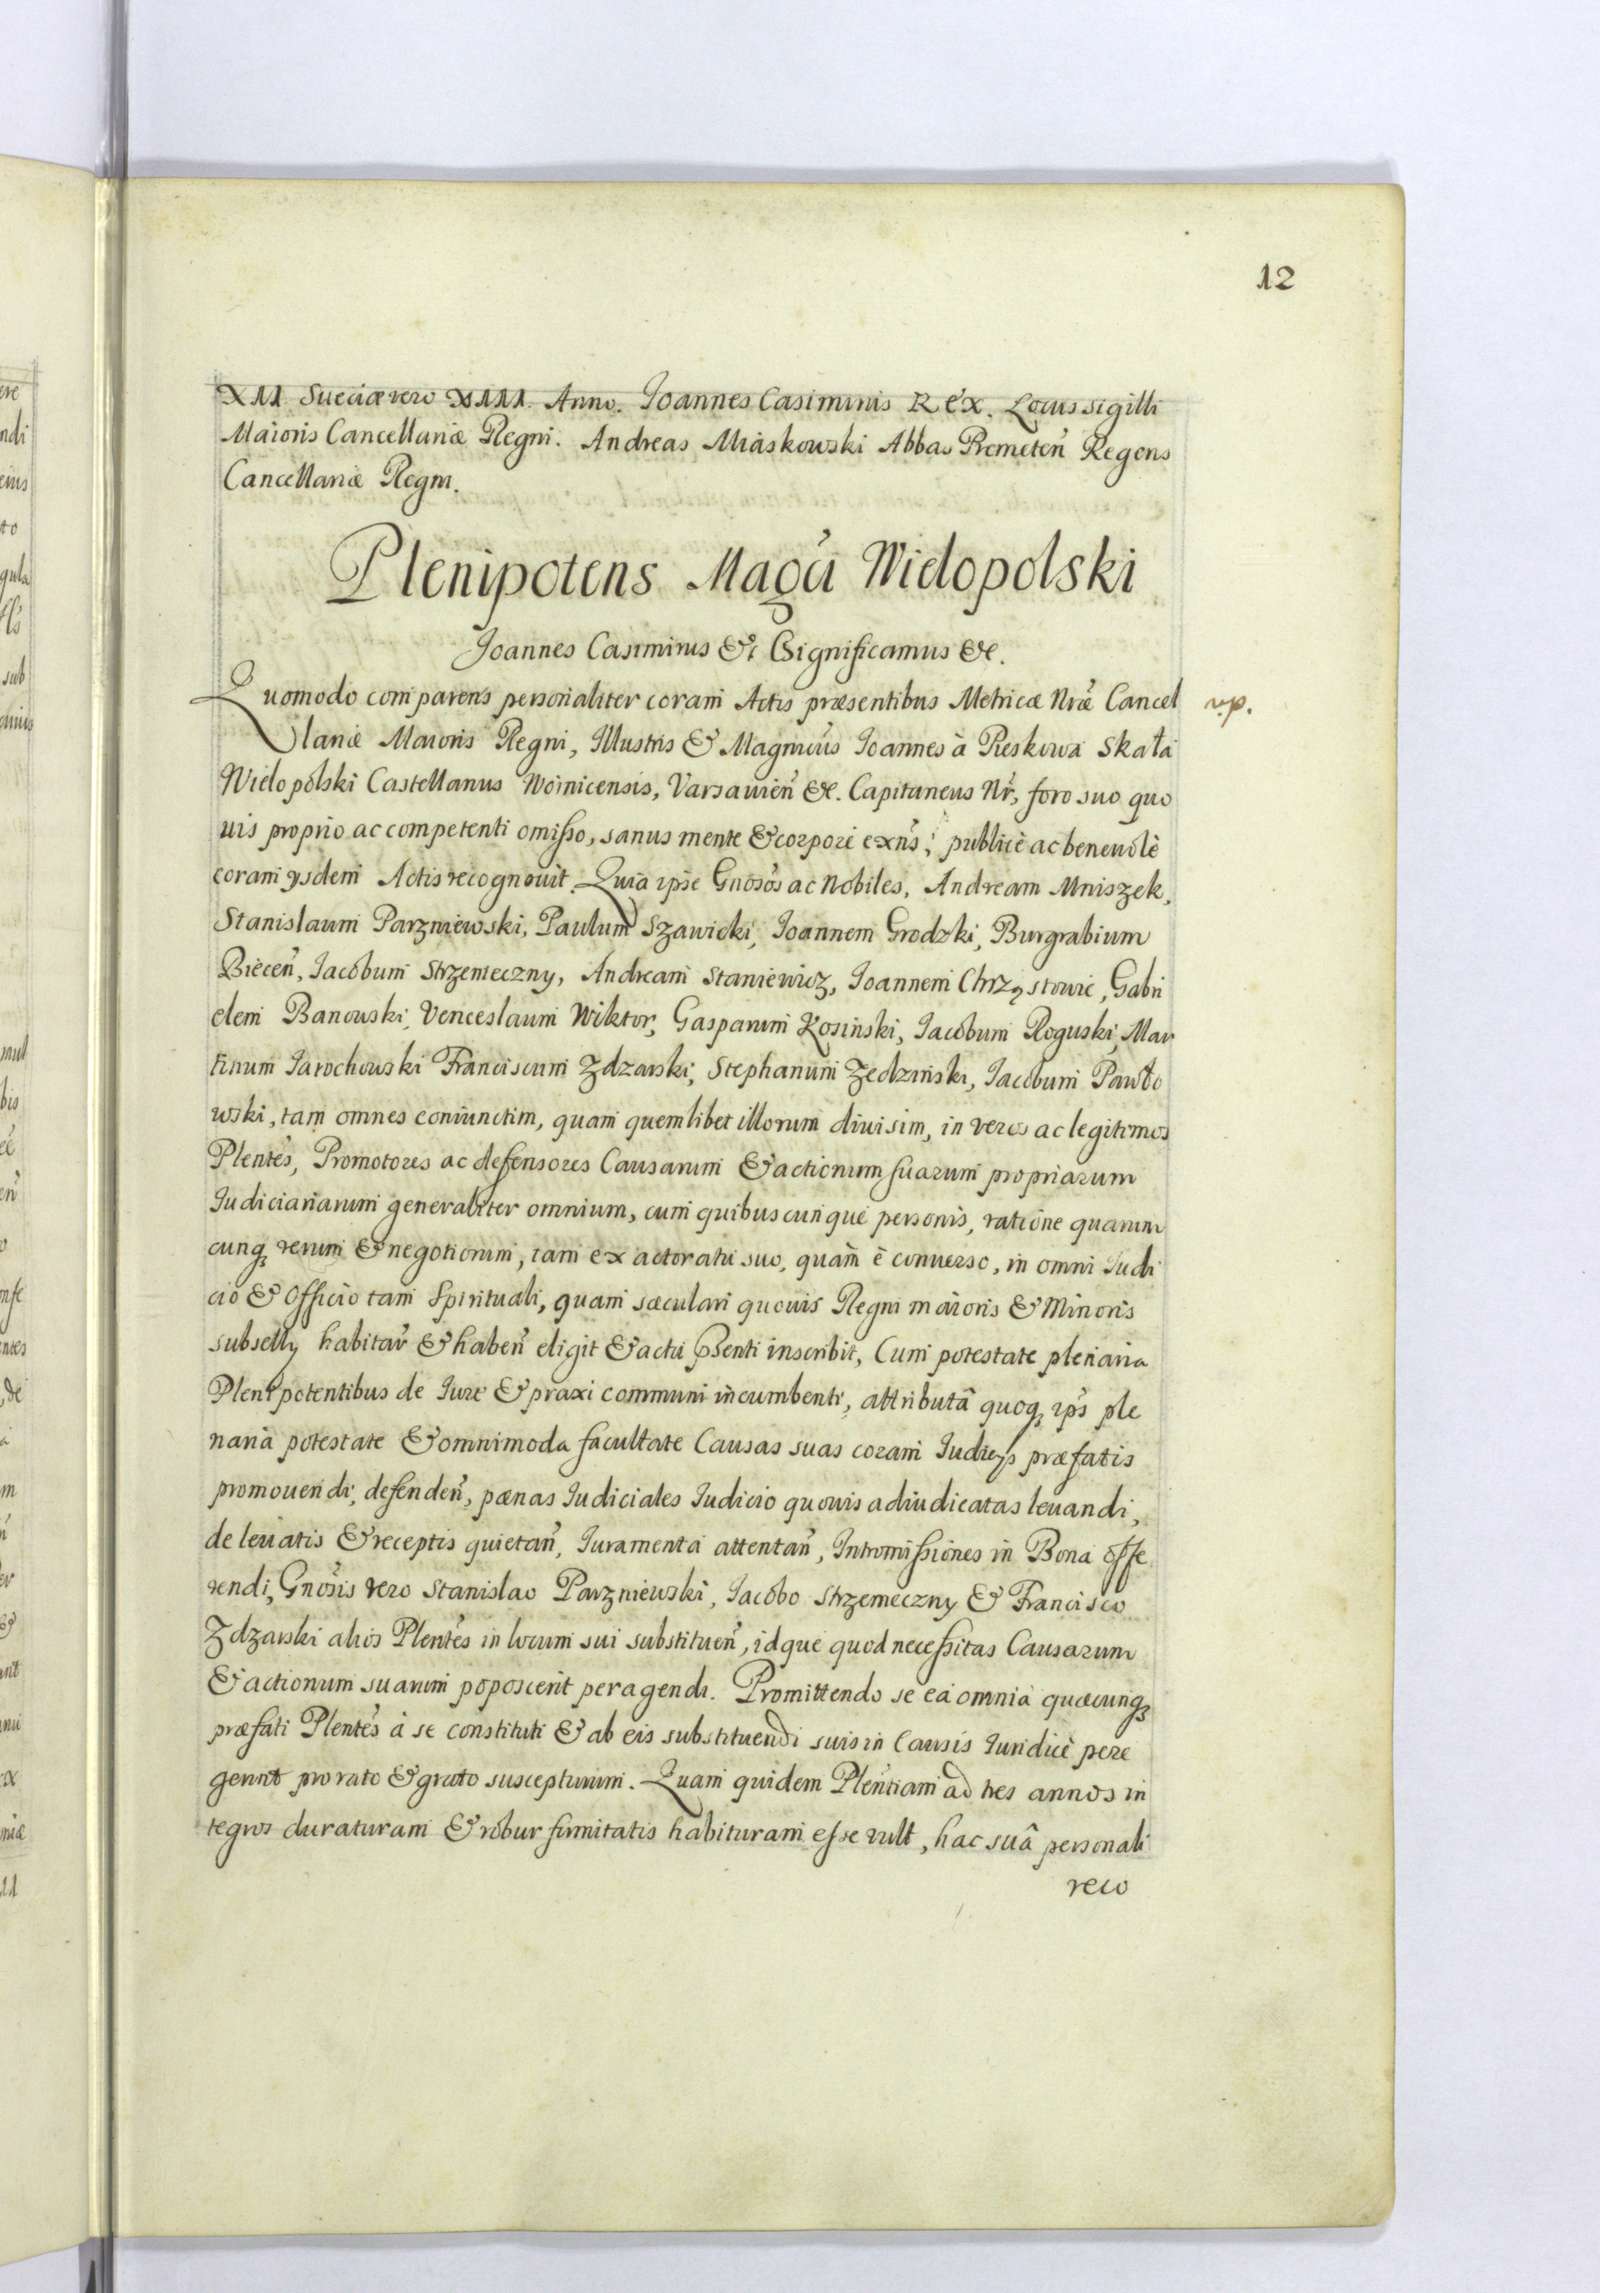 12
XII Sueciæ vero XIII Anno. Joannes Casimirus Rex. Locus sigilli
Maioris Cancellariæ Regni. Andreas Miaskowski Abbas Premeten̄ Regens
Cancellariæ Regni.
Plenipotens Magci Wielopolski
Joannes Casimirus &c Significamus &c.
Quomodo comparens personaliter coram Actis præsentibus Metricæ Nræ Cancel
lariæ Maioris Regni, Illustris & Magnicus Joannes à Pieskowa Skała
Wielopolski Castellanus Woinicensis, Varsauien̄ &c. Capitaneus Nr, foro suo quo
uis proprio ac competenti omisso, sanus mente & corpore exns, publicè ac beneuolè
coram ysdem Actis recognouit. Quia ipse Gnosos ac Nobiles, Andream Mniszek,
Stanislaum Parzniewski, Paulum Szawicki, Joannem Grodzki, Burgrabium
Biecen̄, Jacobum Strzemeczny, Andream Staniewicz, Joannem Chrzystowic, Gabri
elem Banowski, Venceslaum Wiktor, Gasparum Kosinski, Jacobum Roguski, Mar
tinum Jarochowski Franciscum Zdzarski, Stephanum Zedzinski, Jacobum Pawło
wski, tam omnes coniunctim, quam quemlibet illorum diuisim, in veros ac legitimos
Plentes, Promotores ac defensores Causarum & actionum suarum propriarum
Judiciariarum generaliter omnium, cum quibuscunque personis, ratione quarum
cunq rerum & negotiorum, tam ex actoratu suo, quam è conuerso, in omni Judi
cio & Officio tam Spirituali, quam sæculari quouis Regni maioris & Minoris
subselly habitar̄ & haben̄ eligit & actu psenti inscribit, Cum potestate plenaria
Plenipotentibus de Jure & praxi communi incumbenti, attributâ quoq ips ple
naria potestate & omnimoda facultate Causas suas coram Judicys præfatis
promouendi, defenden̄, pænas Judiciales Judicio quouis adiudicatas leuandi,
de leuatis & receptis quietan̄, Juramenta attentan̄, Intromissiones in Bona offe
rendi, Gnosis vero Stanislao Parzniewski, Jacobo Strzemeczny & Francisco
Zdzarski alios Plentes in locum sui substituen̄, idque quod necessitas Causarum
& actionum suarum poposcerit peragendi. Promittendo se ea omnia quæcunq
præfati Plentes à se constituti & ab eis substituendi suis in Causis Juridicè pere
gerint pro rato & grato suscepturum. Quam quidem Plentiam ad tres annos in
tegros duraturam & robur firmitatis habituram esse vult, hac suâ personali
reco